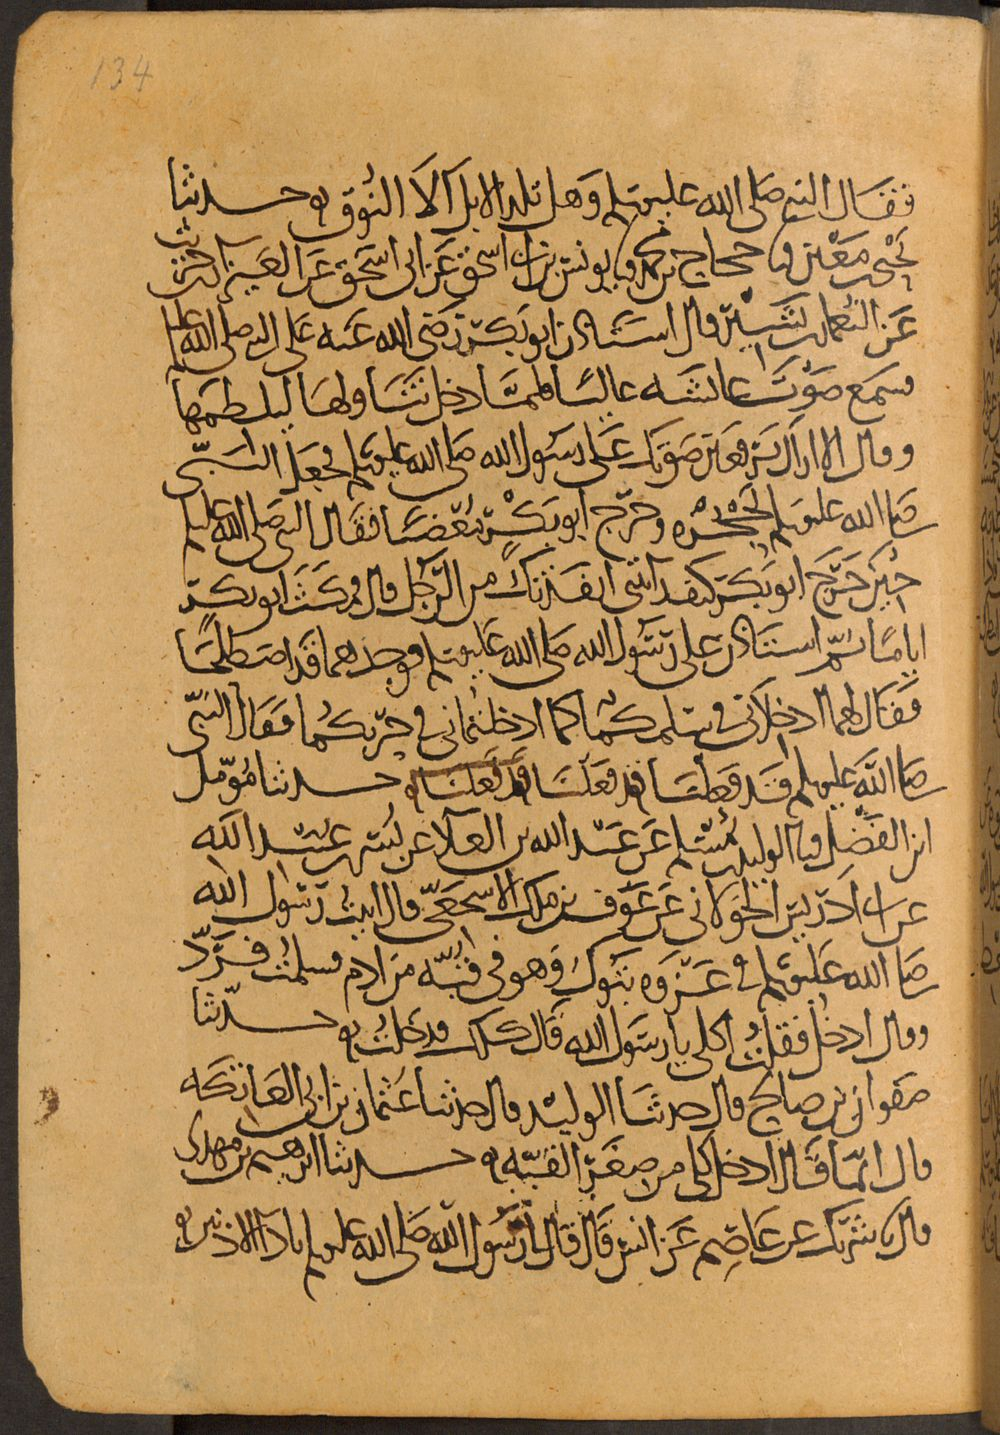 134
فقال النبي صلى الله عليه وسلم وهل تلد الابل الا النوق حدثنا
يحيى بن معين نا حجاج بن محمد نا يونس بن ابي اسحق عن ابي اسحق عن العيزار بن حريث
عن النعمان بن بشير قال استاذن ابو بكر رضي الله عنه على النبي صلى الله عليه وسلم
فسمع صوت عائشه عاليا فلما دخل تناولها ليلطمها
وقال الا اراك ترفعين صوتك على رسول الله صلى الله عليه وسلم فجعل النبي
صلى الله عليه وسلم يحجزه وخرج ابو بكر مغضبا فقال النبي صلى الله عليه وسلم
حين خرج ابو بكر كيف رايتني انقذتك من الرجل قال فمكث ابو بكر
اياما ثم استاذن على رسول الله صلى الله عليه وسلم فوجدهما قد اصطلحا
فقال لهما ادخلاني في سلمكما كما ادخلتماني في حربكما فقال النبي
صلى الله عليه وسلم قد فعلنا قد فعلنا قد فعلنا حدثنا مومل
ابن الفضل نا الوليد بن مسلم عن عبد الله بن العلا عن بسر بن عبيد الله
عن ابي ادريس الخولاني عن عوف بن ملك الاشجعي قال اتيت رسول الله
صلى الله عليه وسلم في غزوه تبوك وهو في قبه من ادم فسلمت فرد
وقال ادخل فقلت اكلي يا رسول الله قال كلك فدخلت حدثنا
صفوان بن صالح قال حدثنا الوليد قال حدثنا عثمان بن ابي العاتكه
قال انما قال ادخل كلي من صغر القبه حدثنا ابرهيم بن مهدي
قال نا شريك عن عاصم عن انس قال قال لي رسول الله صلى الله عليه وسلم يا ذا الاذنين